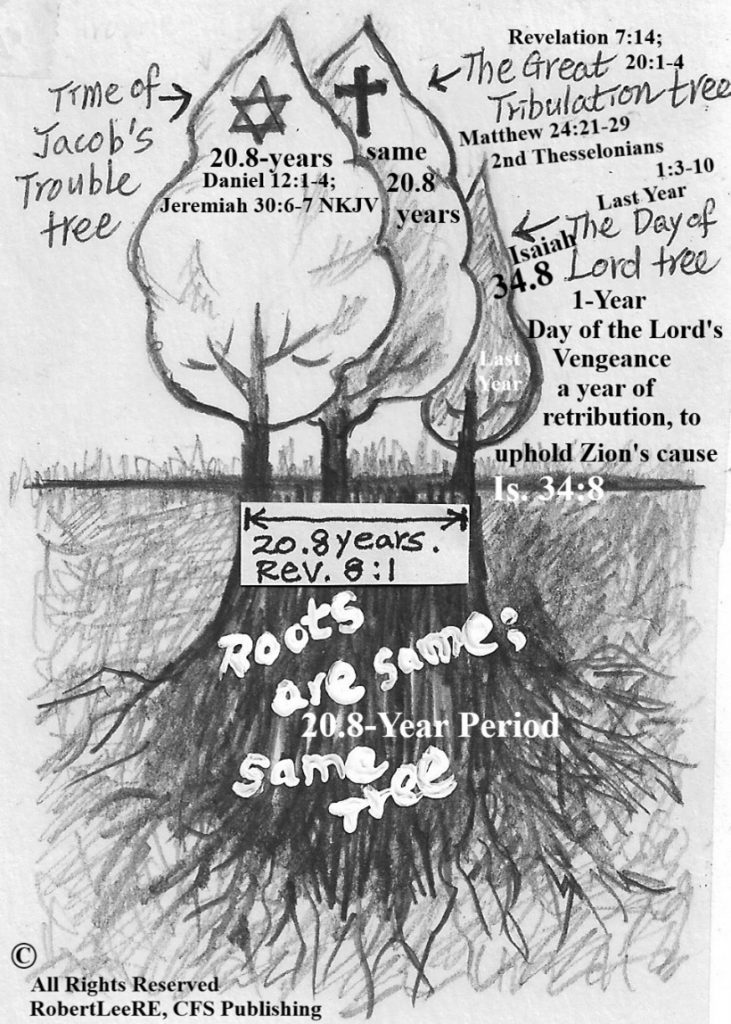 Time of
Jacob's
Trouble
tree
20.8-years
Daniel 12:1-4;
Jeremiah 30:6-7 NKJV
same
20.8
years
Revelation 7:14;
20:1-4
The Great
Tribulation tree
Matthew 24:21-29
2nd Thesselonians
1:3-10
Last Year
The Day of
Lord tree
Isaiah
34.8
1-Year
Day of the Lord's
Vengeance
a year of
retribution, to
uphold Zion's cause
Is. 34:8
Last
Year
20.8 years.
Rev. 8:1
Roots
are same;
20.8-Year Period
same
tree
©
All Rights Reserved
RobertLeeRE, CFS Publishing